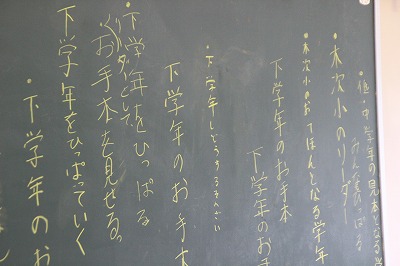 低・中学年の見本となる学
みんなをひっぱる
・木次小のリーダー
・木次小のおてほんとなる学年
下学年のお手本
下学年のお手
・下学年に
下学年のお手本
・下学年をひっぱる
リーダーとして
お手本を見せる。
下学年をひっぱっていく
・下学年のお